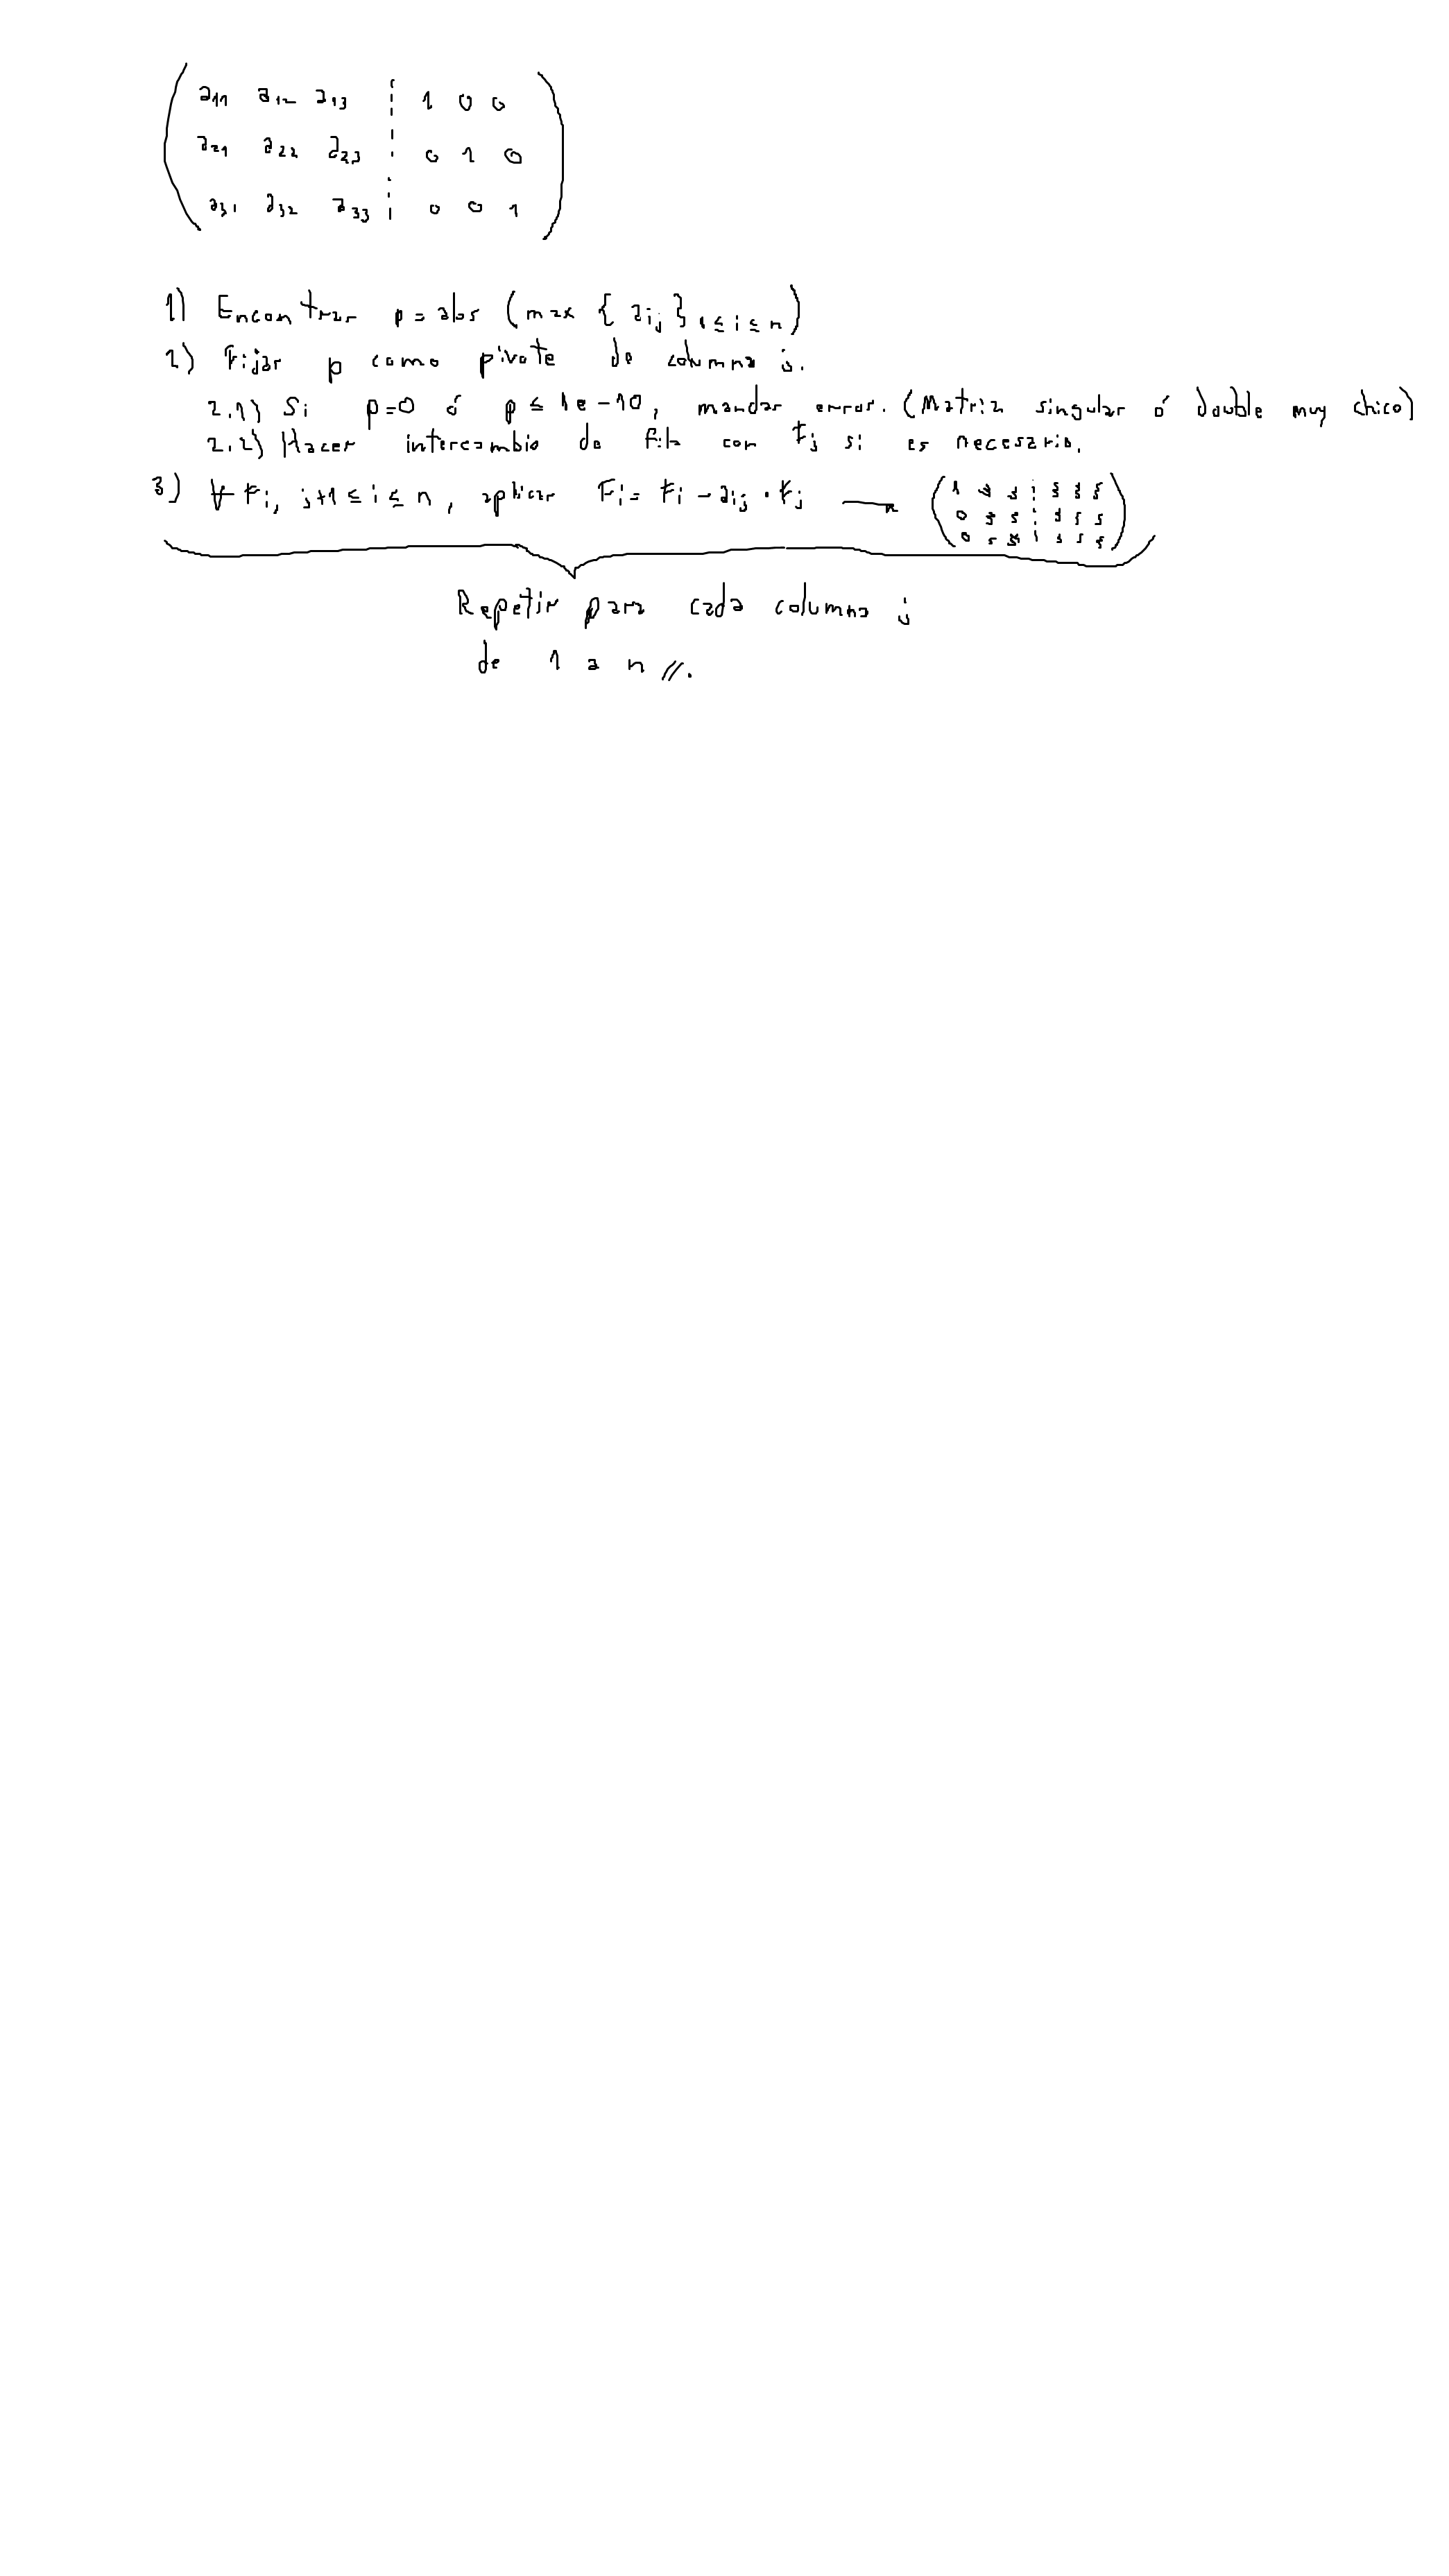 a11 a12 a13 1 0 0
a21 a22 a23 0 1 0
a31 a32 a33 0 0 1
1) Encontrar p = abs (max { aij } 1 ≤ i ≤ n )
2) Fijar p como pivote de columna j.
2.1) Si p=0 ó p ≤ 1e-10, mandar error. (Matriz singular ó double muy chico)
2.2) Hacer intercambio de fila con Fj si es necesario.
3) ∀ Fi, j+1 ≤ i ≤ n, aplicar Fi = Fi - aij · Fj
Repetir para cada columna j
de 1 a n //.